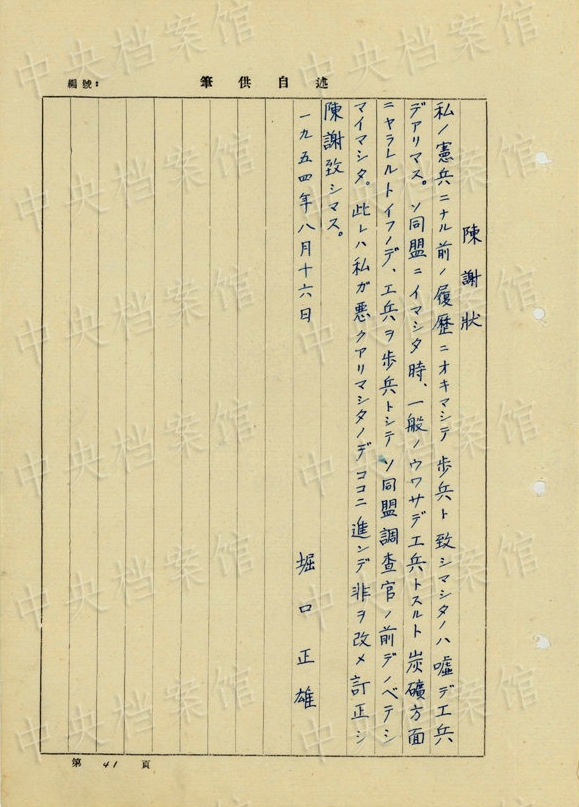 編號:
述自供筆
陳謝狀
私ノ憲兵ニナル前ノ履歴ニオキマシテ歩兵ト致シマシタノハ嘘デ工兵
デアリマス。ソ同盟ニイマシタ時、一般ノウワサデ工兵トスルト炭礦方面
ニヤラレルトイフノデ、工兵ヲ歩兵トシテソ同盟調査官ノ前デノベテシ
マイマシタ。此レハ私ガ悪クアリマシタノデココニ進ンデ非ヲ改メ訂正シ
陳謝致シマス。
一九五四年八月十六日
堀口正雄
第 41 頁
中央档案馆